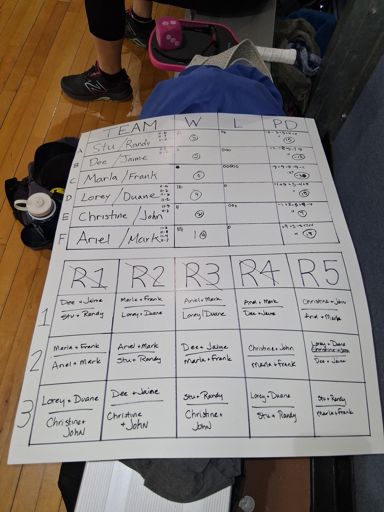 TEAM W L PD
A Stu / Randy
B Dee / Jaime
C Marla / Frank
D Lorey / Duane
E Christine / John
F Ariel / Mark
R1 R2 R3 R4 R5
1
Dee + Jaime
Stu + Randy
Marla + Frank
Lorey + Duane
Ariel + Mark
Lorey / Duane
Ariel + Mark
Dee + Jaime
Christine + John
Ariel + Mark
2
Marla + Frank
Ariel + Mark
Ariel + Mark
Stu + Randy
Dee + Jaime
Marla + Frank
Christine + John
Marla + Frank
Lorey + Duane
Christine + John
Dee + Jaime
3
Lorey + Duane
Christine +
JOHN
Dee + Jaime
Christine
+ JOHN
Stu + Randy
Christine +
JOHN
Lorey + Duane
Stu + Randy
Stu + Randy
Marla + Frank